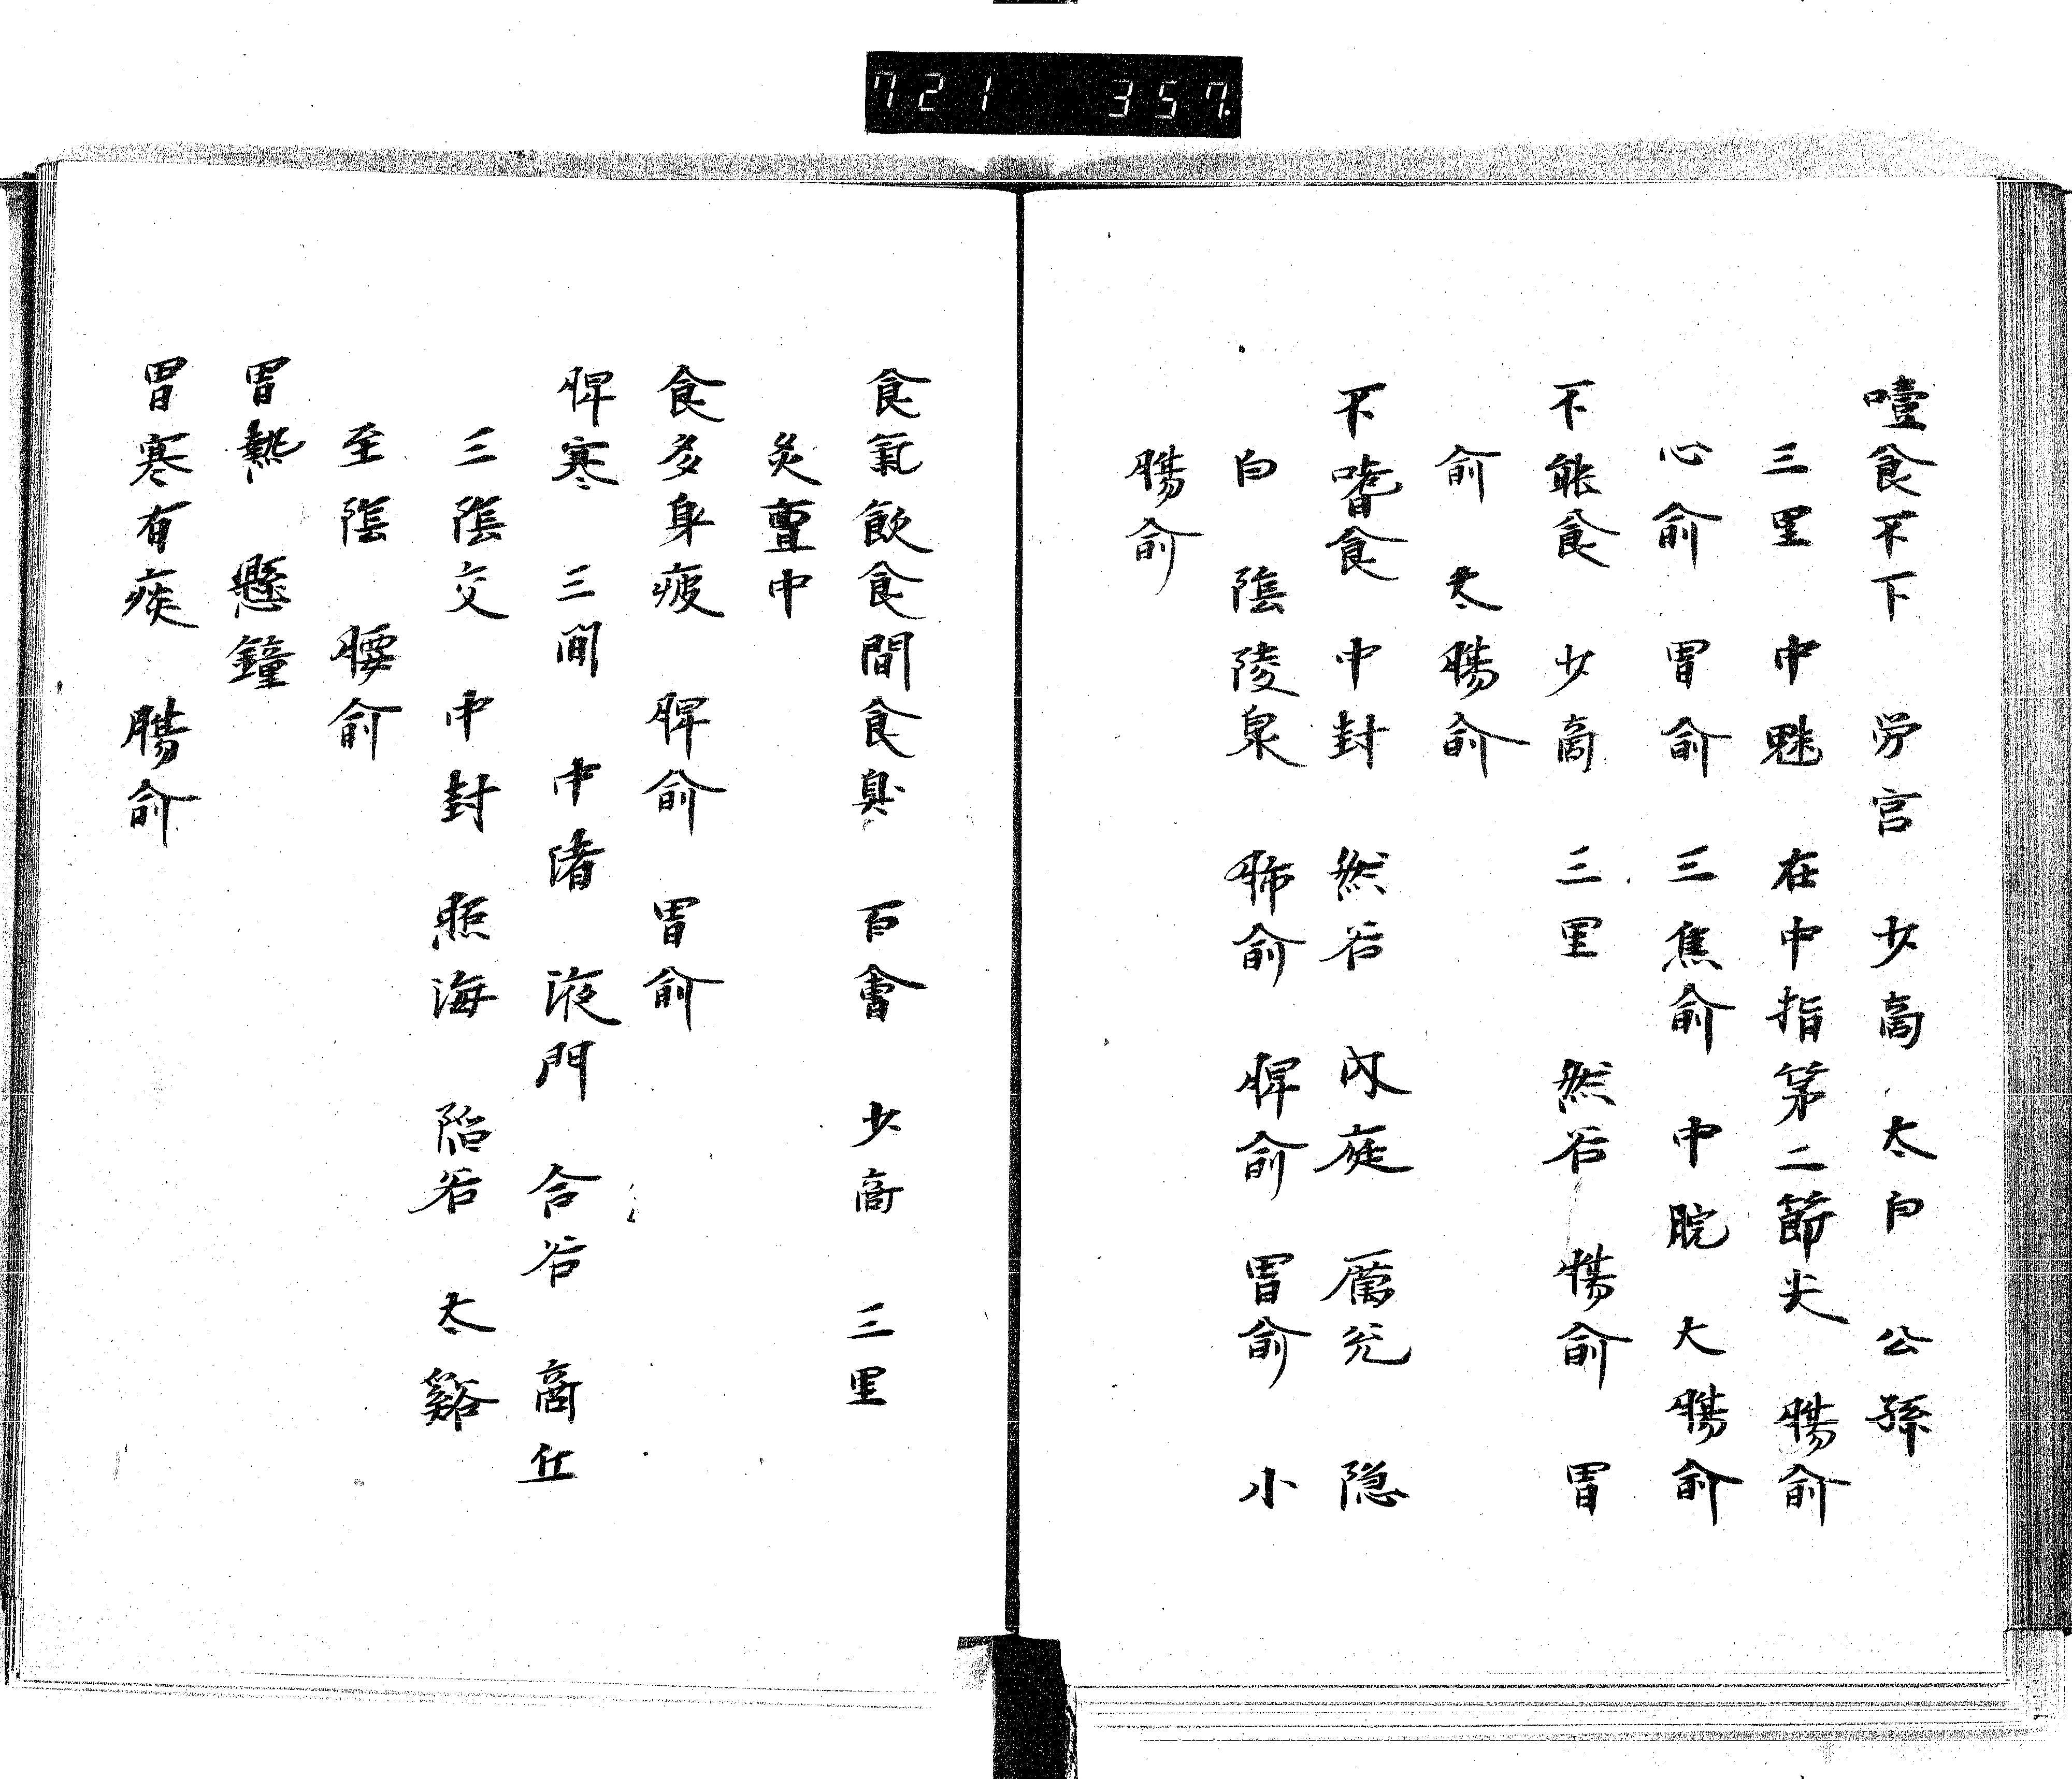 721 357
噎食不下 労宮 少商 太白 公孫
三里 中魁 在中指第二節尖 腸俞
心俞 胃俞 三焦俞 中脘 大腸俞
不能食 少商 三里 然谷 腸俞 胃
俞 太腸俞
不嗜食 中封 然谷 内庭 厲兊 隐
白 陰陵泉 肺俞 脾俞 胃俞 小
腸俞
食氣飲食間食臭 百會 少商 三里
灸亶中
食多身疲 脾俞 胃俞
脾寒 三間 中渚 液門 合谷 商丘
三陰交 中封 照海 陷谷 太谿
至陰 腰俞
胃熱 懸鐘
胃寒有痰 腸俞